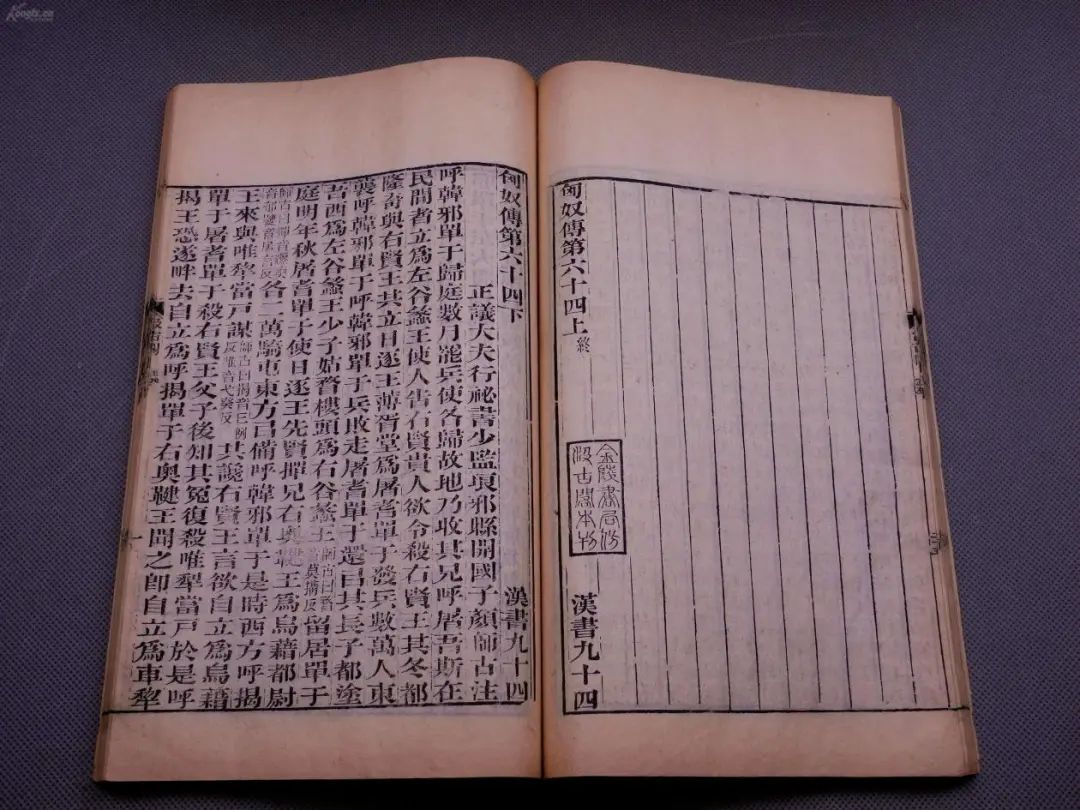 匈奴傳第六十四上 終
金陵書局仿
汲古閣本刊
漢書九十四
匈奴傳第六十四下 漢書九十四
正議大夫行祕書少監琅邪縣開國子顏師古注
呼韓邪單于歸庭數月罷兵使各歸故地乃收其兄呼屠吾斯在
民間者立爲左谷蠡王使人告右賢貴人欲令殺右賢王其冬都
隆奇與右賢王共立日逐王薄胥堂爲屠耆單于發兵數萬人東
襲呼韓邪單于呼韓邪單于兵敗走屠耆單于還㠯其長子都塗
吾西爲左谷蠡王少子姑瞀樓頭爲右谷蠡王師古曰瞀音莫搆反留居單于
庭明年秋屠耆單于使日逐王先賢撣兄右奧鞬王爲烏藉都尉
師古曰撣音纏奧音郁鞬音居言反各二萬騎屯東方㠯備呼韓邪單于是時西方呼揭
王來與唯犂當戶謀師古曰揭音丘例反唯音弋癸反共讒右賢王言欲自立爲烏藉
單于屠耆單于殺右賢王父子後知其冤復殺唯犂當戶於是呼
揭王恐遂畔去自立爲呼揭單于右奧鞬王聞之卽自立爲車犂
Kongfz.cn